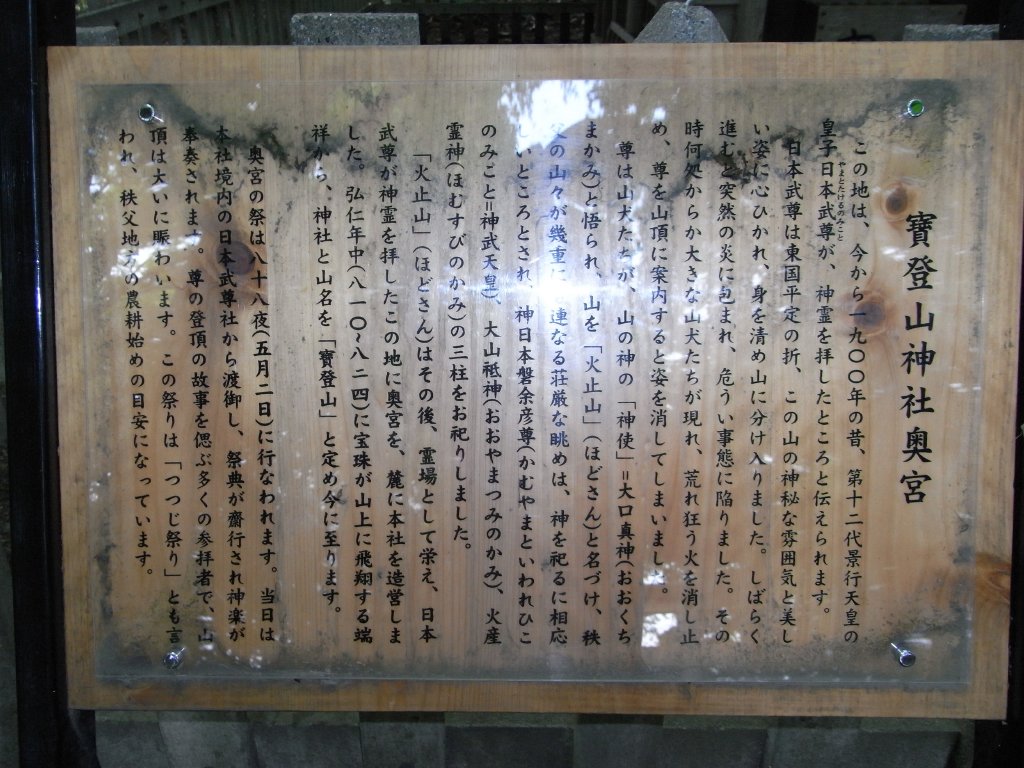 寶登山神社奥宮
この地は、今から一九〇〇年の昔、第十二代景行天皇の
皇子日本武尊が、神霊を拝したところと伝えられます。
やまとたけるのみこと
日本武尊は東国平定の折、この山の神秘な雰囲気と美し
い姿に心ひかれ、身を清め山に分け入りました。しばらく
進むと突然の炎に包まれ、危うい事態に陥りました。その
時何処からか大きな山犬たちが現れ、荒れ狂う火を消し止
め、尊を山頂に案内すると姿を消してしまいました。
尊は山犬たちが、山の神の「神使」=大口真神(おおくち
まかみ)と悟られ、山を「火止山」(ほどさん)と名づけ、秩
父の山々が幾重に連なる荘厳な眺めは、神を祀るに相応
しいところとされ、神日本磐余彦尊(かむやまといわれひこ
のみこと=神武天皇)、大山祗神(おおやまつみのかみ)、火産
霊神(ほむすびのかみ)の三柱をお祀りしました。
「火止山」(ほどさん)はその後、霊場として栄え、日本
武尊が神霊を拝したこの地に奥宮を、麓に本社を造営しま
した。弘仁年中(八一〇〜八二四)に宝珠が山上に飛翔する端
祥から、神社と山名を「寶登山」と定め今に至ります。
奥宮の祭は八十八夜(五月二日)に行なわれます。当日は
本社境内の日本武尊社から渡御し、祭典が齋行され神楽が
奉奏されます。尊の登頂の故事を偲ぶ多くの参拝者で、山
頂は大いに賑わいます。この祭りは「つつじ祭り」とも言
われ、秩父地方の農耕始めの目安になっています。